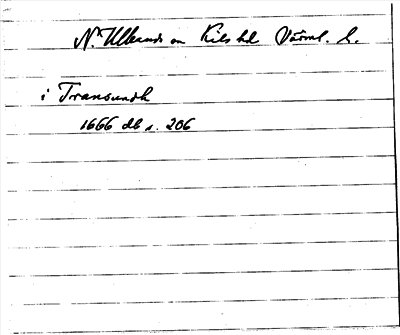 N. Ullerud sn Kils hd Värml. l.
i Transundh
1666 db s. 206